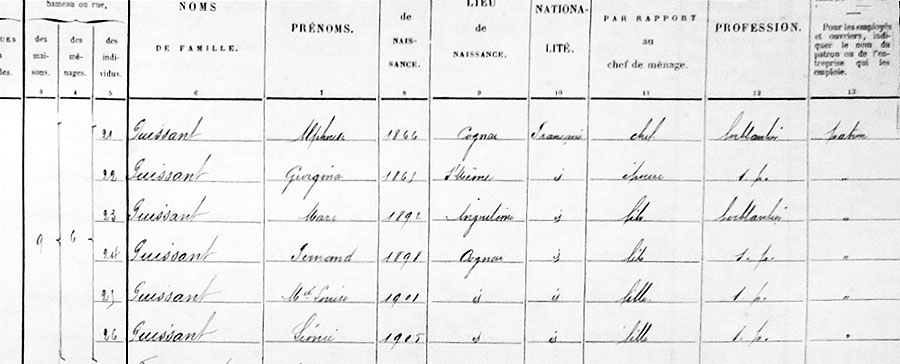 hameau ou rue,
des maisons.
des ménages.
des individus.
NOMS
DE FAMILLE.
PRÉNOMS.
de
NAISSANCE.
LIEU
de
NAISSANCE.
NATIONALITÉ.
PAR RAPPORT
au
chef de ménage.
PROFESSION.
Pour les employés
et ouvriers, indiquer le nom du
patron ou de l'entreprise qui les
emploie.
3 4 5 6 7 8 9 10 11 12 13
21 Guissant Alphonse 1866 Cognac Française chef patron
22 Guissant Georgina id s. p. "
23 Guissant Marc 1892 Angoulême id fils "
9 6
24 Guissant Fernand 1898 Cognac id fils s. p. "
25 Guissant Mie Louise 1901 id id fille s. p. "
26 Guissant Léonie 1905 id id fille s. p. "